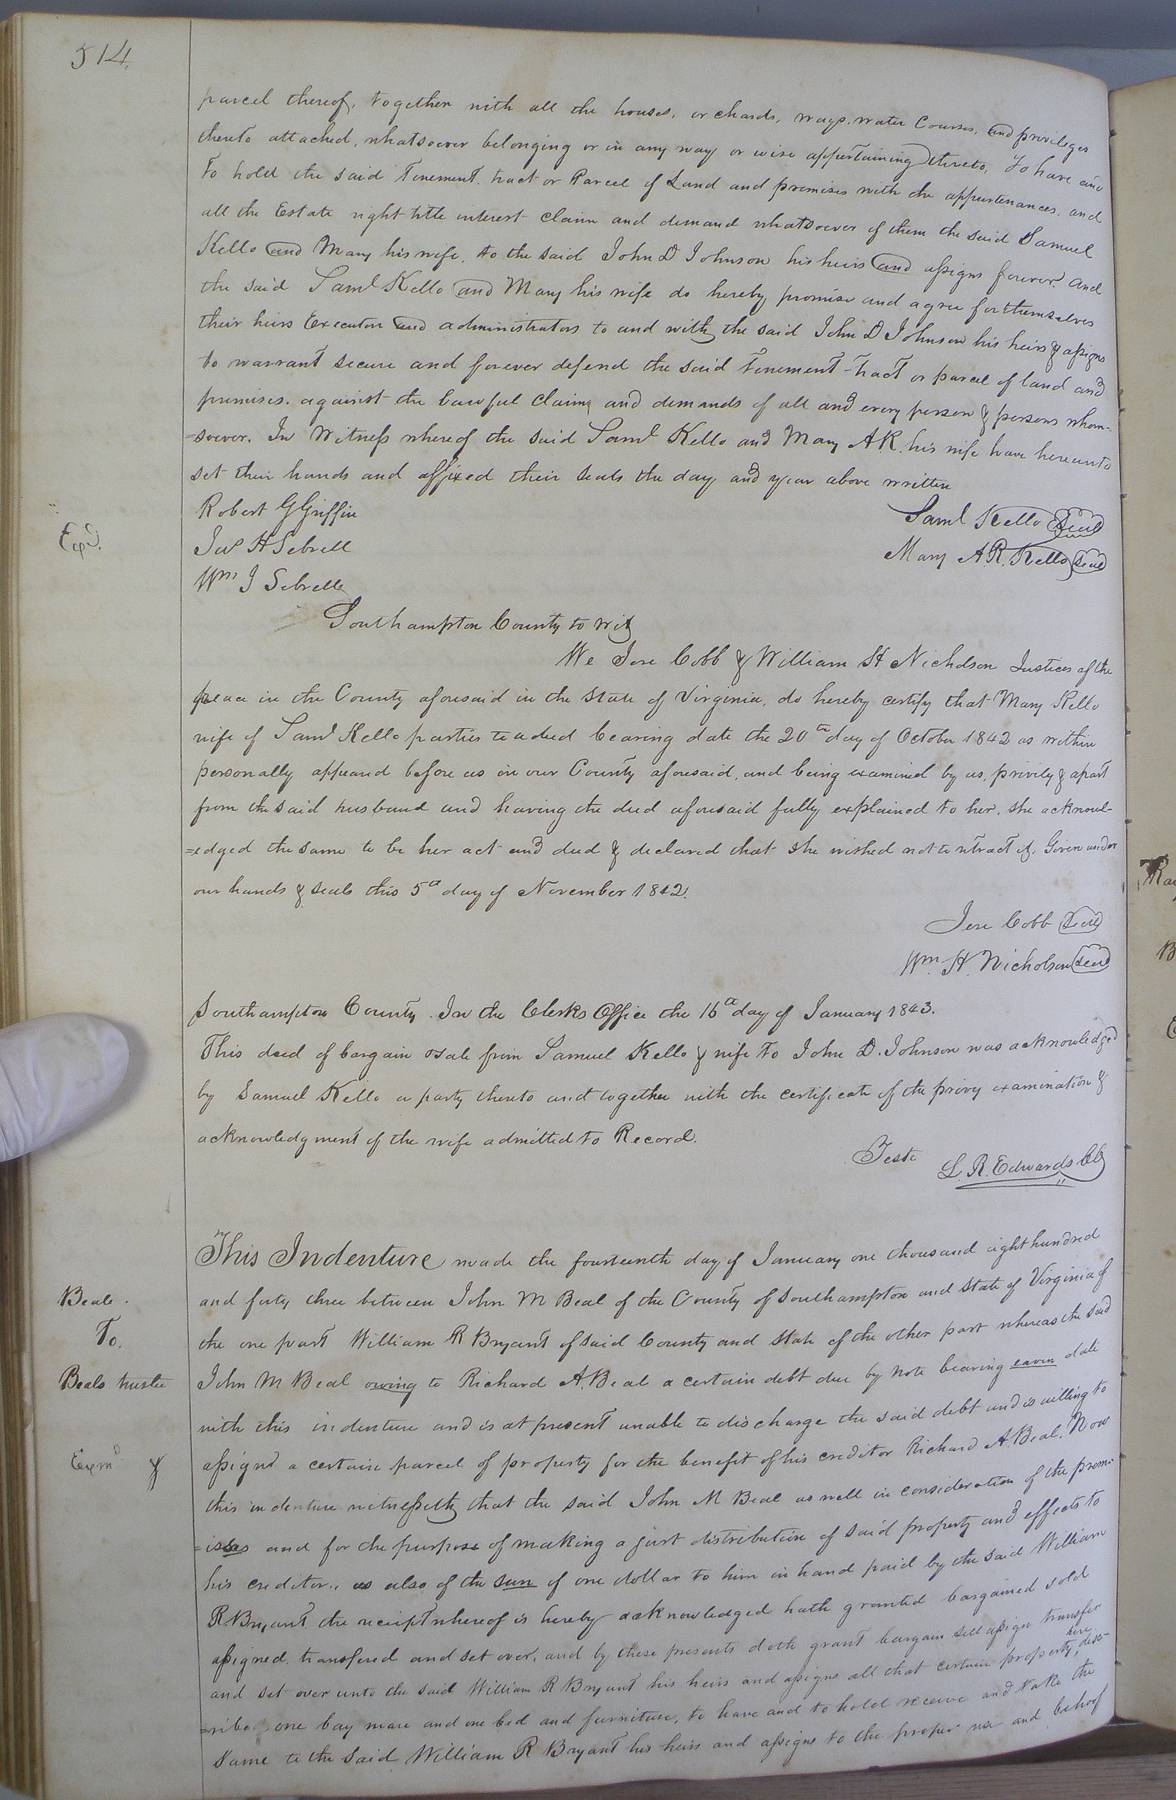 514.
parcel thereof, together with all the houses, orchards, ways, water Courses, and privileges
thereto attached, whatsoever belonging or in any way or wise appertaining thereto, To have and
To hold the said Tenement, tract or Parcel of Land and premises with the appurtenances, and
all the Estate right title interest claim and demand whatsoever of them the said Samuel
Kello and Mary his wife, to the said John D Johnson his heirs and assigns forever. And
the said Saml Kello and Mary his wife do hereby promise and agree for themselves
their heirs Executors and administrators to and with the said John D Johnson his heirs & assigns
to warrant secure and forever defend the said Tenement - tract or parcel of land and
premises. against the lawful claims and demands of all and every person & persons whom-
=soever. In Witness whereof the said Saml Kello and Mary A R. his wife have hereunto
set their hands and affixed their seals the day and year above written
Robert G Griffin
Saml Kello Seal
Exd.
Jas H Sebrell
Mary A. R. Kello Seal
Wm J Sebrelle
Southampton County to wit
We Jere Cobb & William H Nicholson Justices of the
peace in the County aforesaid in the State of Virginia, do hereby certify that Mary Kello
wife of Saml Kello parties to a deed bearing date the 20th day of October 1842 as within
personally appeared before us in our County aforesaid, and being examined by us, privily & apart
from the said husband and having the deed aforesaid fully explained to her, she acknowl-
=edged the same to be her act and deed & declared that she wished not to retract it. Given under
our hands & seals this 5th day of November 1842.
Jere Cobb Seal
Wm. H. Nicholson Seal
Southampton County. In the Clerks Office the 16th day of January 1843.
This deed of bargain & sale from Samuel Kello & wife To John D. Johnson was acknowledged
by Samuel Kello a party thereto and together with the certificate of the privy examination &
acknowledgment of the wife admitted to Record.
Teste L. R. Edwards Clk
This Indenture made the fourteenth day of January one thousand eight hundred
Beale.
and forty three between John M Beal of the County of Southampton and State of Virginia of
To.
the one part William R Bryant of said County and State of the other part whereas the said
Beals trustee
John M Beal owing to Richard A. Beal a certain debt due by note bearing eaven date
with this indenture and is at present unable to discharge the said debt and is willing to
Exmd &
assignd a certain parcel of property for the benefit of his creditor Richard A Beal. Now
this indenture witnesseth that the said John M Beal as well in consideration of the prem-
=isses and for the purpose of making a just distribution of said property and effects to
his creditor., as also of the sum of one dollar to him in hand paid by the said William
R Bryant the receipt whereof is hereby acknowledged hath granted bargained sold
assigned, transfered and set over, and by these presents doth grant bargain sell assign transfer
and set over unto the said William R Bryant his heirs and assigns all that certain property, here desc-
=ribed one bay mare and one bed and furniture, to have and to hold receive and take the
same to the said William R Bryant his heirs and assigns to the proper use and behoof